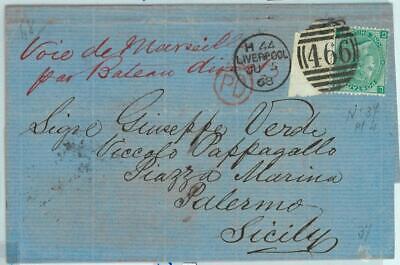 Voie de Marseille
par Bateau direct
H 44
LIVERPOOL
JU 5
68
466
PD
Sigr Giuseppe Verde
Viccolo Pappagallo
Piazza Marina
Palermo
Sicily